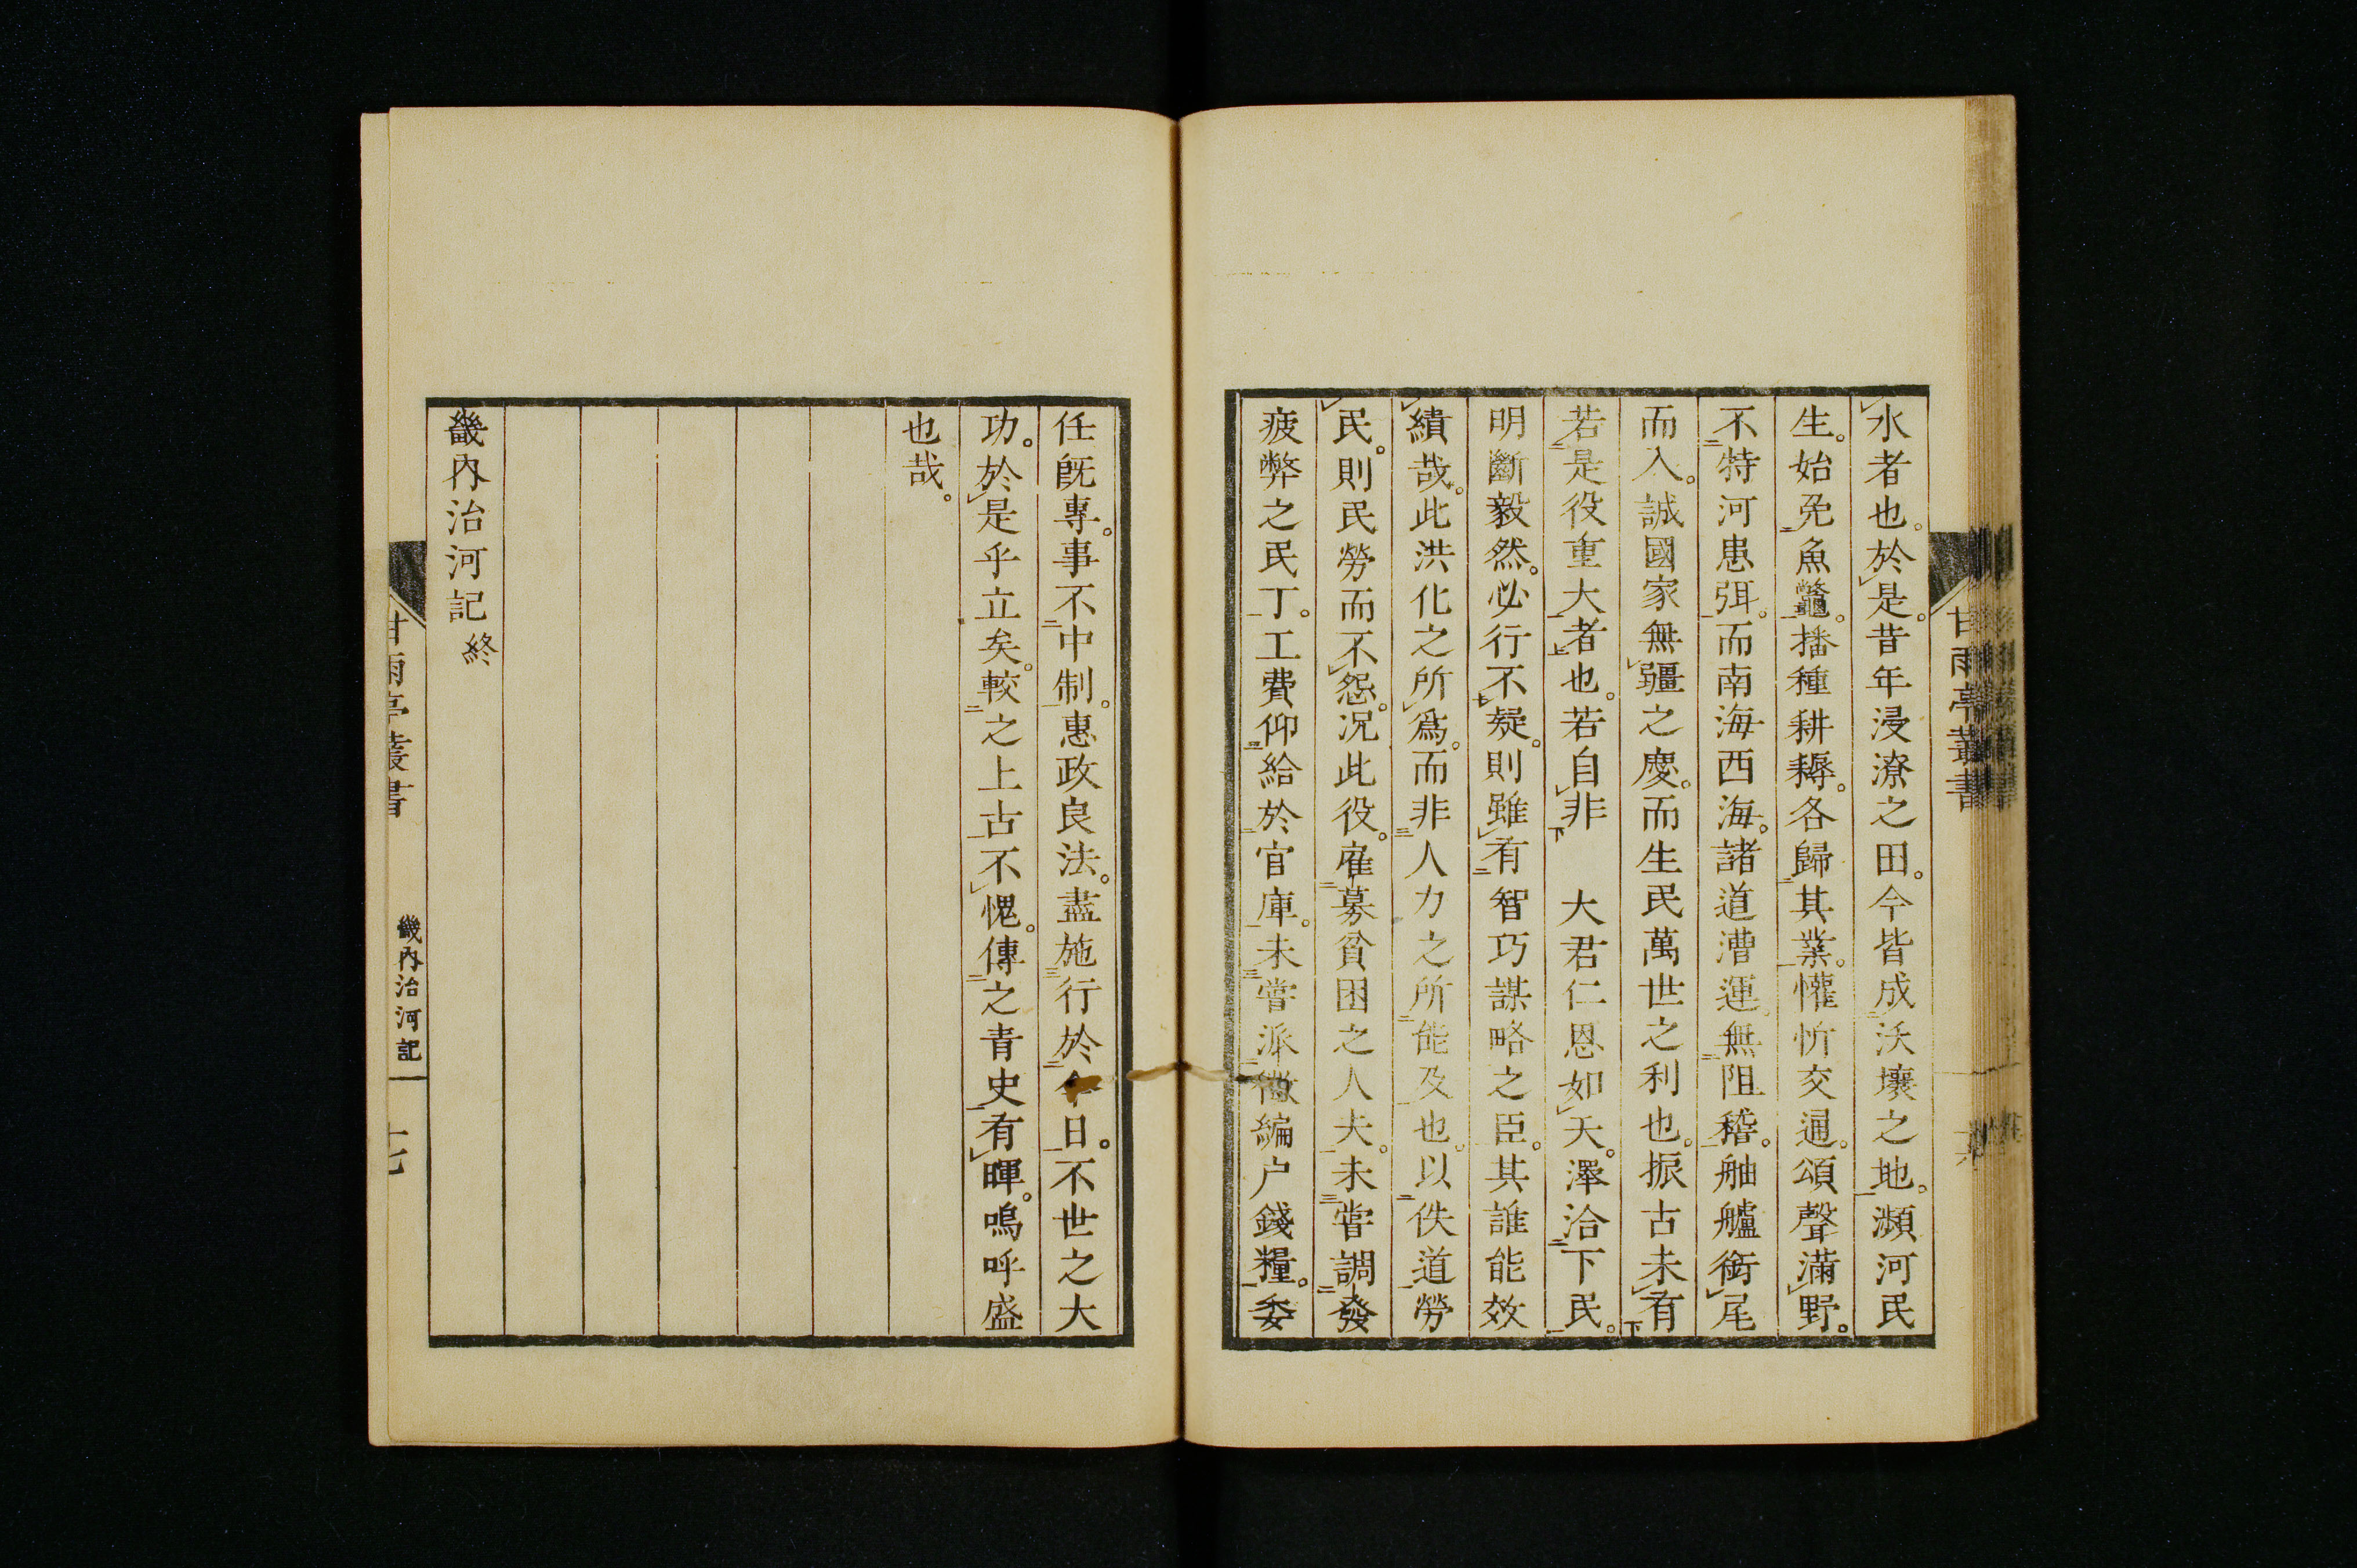 水者也。於是。昔年浸潦之田。今皆成沃壤之地。瀕河民
生。始免魚鼈。播種耕耨。各歸其業。懽忻交通。頌聲滿野。
不特河患弭。而南海西海。諸道漕運。無阻稽。舳艫銜尾
而入。誠國家無疆之慶。而生民萬世之利也。振古未有
若是役重大者也。若自非　大君仁恩如天。澤洽下民。
明斷毅然。必行不疑。則雖有智巧謀略之臣。其誰能效
績哉。此洪化之所爲。而非人力之所能及也。以佚道勞
民。則民勞而不怨。况此役。雇募貧困之人夫。未嘗調發
疲弊之民丁。工費仰給於官庫。未嘗派徵編户錢糧。委
甘雨亭叢書
任既專。事不中制。惠政良法。盡施行於今日。不世之大
功。於是乎立矣。較之上古不愧。傳之青史有暉。嗚呼盛
也哉。
畿內治河記終
甘雨亭叢書　畿內治河記　十七